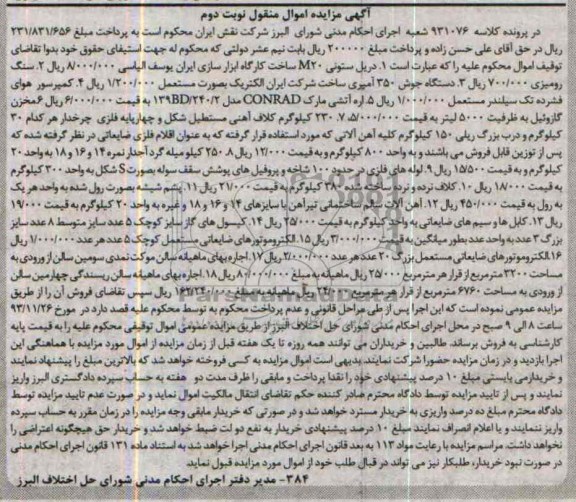 آگهی مزایده اموال منقول نوبت دوم
در پرونده کلاسه ۹۳۱۰۷۶ شعبه اجرای احکام مدنی شورای البرز شرکت نقش ایران محکوم است به پرداخت مبلغ ۲۳۱/۸۳۱/۶۵۶
ریال در حق آقای علی حسن زاده و پرداخت مبلغ ۲۰۰۰۰۰ ریال بابت نیم عشر دولتی که محکوم له جهت استیفای حقوق خود بدوا تقاضای
توقیف اموال محکوم علیه را که عبارت است ۱. دریل ستونی M۲۰ ساخت کارگاه ابزار سازی ایران یوسف الیاسی ۸/۰۰۰/۰۰۰ ریال ۲. سنگ
رومیزی ۷۰۰/۰۰۰ ریال ۳. دستگاه جوش ۳۵۰ آمپری ساخت شرکت ایران الکتریک بصورت مستعمل ۱/۲۰۰/۰۰۰ ریال ۴. کمپرسور هوای
فشرده تک سیلندر مستعمل ۱/۰۰۰/۰۰۰ ریال ۵. اره آتشی مارک CONRAD مدل ۱۳۹BD/۲۴۰/۲ به قیمت ۶/۰۰۰/۰۰۰ ریال ۶. مخزن
گازوئیل به ظرفیت ۵۰۰۰ لیتر به قیمت ۵/۰۰۰/۰۰۰ ۷. ۲۳۰ کیلوگرم کلاف آهنی مستطیل شکل و چهارپایه فلزی چرخدار هر کدام ۳۰
کیلوگرم و درب بزرگ ریلی ۱۵۰ کیلوگرم کلیه آهن آلاتی که مورد استفاده قرار گرفته که به عنوان اقلام فلزی ضایعاتی در نظر گرفته شده که
پس از توزین قابل فروش می باشند و به واحد ۸۰۰ کیلوگرم و به قیمت ۱۲/۰۰۰ ریال ۸. ۲۵۰ کیلو میله گرد آجدار نمره ۱۴ و ۱۶ و ۱۸ به واحد ۲۰
کیلوگرم و به قیمت ۱۵/۵۰۰ ریال ۹. لوله های فلزی در حدود ۱۰ شاخه و پروفیل های پوشش سقف سوله بصورت S شکل به واحد ۳۰۰ کیلوگرم
به قیمت ۱۸/۰۰۰ ریال ۱۰. کلاف نرده و نرده ساخته شده ۳۸۰ کیلوگرم به قیمت ۲۱/۰۰۰ ریال ۱۱. پشم شیشه بصورت رول شده به واحد هر یک
به رول به قیمت ۴۵۰/۰۰۰ ریال ۱۲. آهن آلات ساختمانی تیرآهن با سایزهای ۱۴ و ۱۶ و ۱۸ و غیره به واحد ۲۰ کیلوگرم به قیمت ۱۹/۰۰۰
ریال ۱۳. کابل ها و سیم های ضایعاتی به واحد کیلوگرم به قیمت ۲۵/۰۰۰ ریال ۱۴. کپسول های گاز سایز کوچک ۵ عدد سایز متوسط ۸ عدد سایز
بزرگ ۳ عدد به واحد عدد بطور میانگین به قیمت ۳/۰۰۰/۰۰۰ ریال ۱۵. الکتروموتورهای ضایعاتی مستعمل کوچک ۵ عدد هر عدد ۱/۰۰۰/۰۰۰ ریال
۱۶. الکتروموتورهای ضایعاتی مستعمل بزرگ ۲۰ عدد هر عدد ۲/۰۰۰/۰۰۰ ریال ۱۷. اجاره بهای ماهیانه سالن موکت نمدی سومین سالن از ورودی به
مساحت ۳۲۰۰ مترمربع از قرار هر مترمربع ۲۵/۰۰۰ ریال ماهیانه به مبلغ ۸۰/۰۰۰/۰۰۰ ریال ۱۸. اجاره بهای ماهیانه سالن ریسندگی چهارمین سالن
از ورودی به مساحت ۶۷۶۰ مترمربع از قرار هر مترمربع ۲۴/۰۰۰ ریال ماهیانه به مبلغ ۱۶۲/۲۴۰/۰۰۰ ریال سپس تقاضای فروش آن را از طریق
مزایده عمومی نموده است که این اجرا پس از طی مراحل قانونی و عدم پرداخت محکوم به توسط محکوم علیه قصد دارد در مورخ ۹۳/۱۱/۲۶
ساعت ۸ الی ۹ صبح در محل اجرای احکام مدنی شورای حل اختلاف البرز از طریق مزایده عمومی اموال توقیفی محکوم علیه را به قیمت پایه
کارشناسی به فروش برساند. طالبین و خریداران می توانند همه روزه تا یک هفته قبل از زمان مزایده از اموال مورد مزایده با هماهنگی این
اجرا بازدید و در زمان مزایده حضورا شرکت نمایند. بدیهی است اموال مزایده به کسی فروخته خواهد شد که بالاترین مبلغ را پیشنهاد نمایند
و خریدار می بایستی مبلغ ۱۰ درصد پیشنهادی خود را نقدا پرداخت و مابقی را ظرف مدت دو هفته به حساب سپرده دادگستری البرز واریز
نمایند و پس از تایید مزایده توسط دادگاه محترم صادر کننده حکم تقاضای انتقال مالکیت اموال نماید و در صورت عدم تایید مزایده توسط
دادگاه محترم مبلغ ده درصد واریزی به خریدار مسترد خواهد شد و در صورتی که خریدار مابقی وجه مزایده را در زمان مقرر به حساب سپرده
واریز ننمایند و یا اعلام انصراف نمایند مبلغ ۱۰ درصد پیشنهادی خریدار به نفع دولت ضبط خواهد شد و خریدار حق هیچگونه اعتراضی را
نخواهد داشت. مراسم مزایده با رعایت مواد ۱۱۳ به بعد قانون اجرای احکام مدنی اجرا خواهد شد به استناد ماده ۱۳۱ قانون اجرای احکام مدنی
در صورت نبود خریدار، طلبکار نیز می تواند در قبال طلب خود از اموال مورد مزایده قبول نماید
۳۸۴- مدیر دفتر اجرای احکام مدنی شورای حل اختلاف البرز